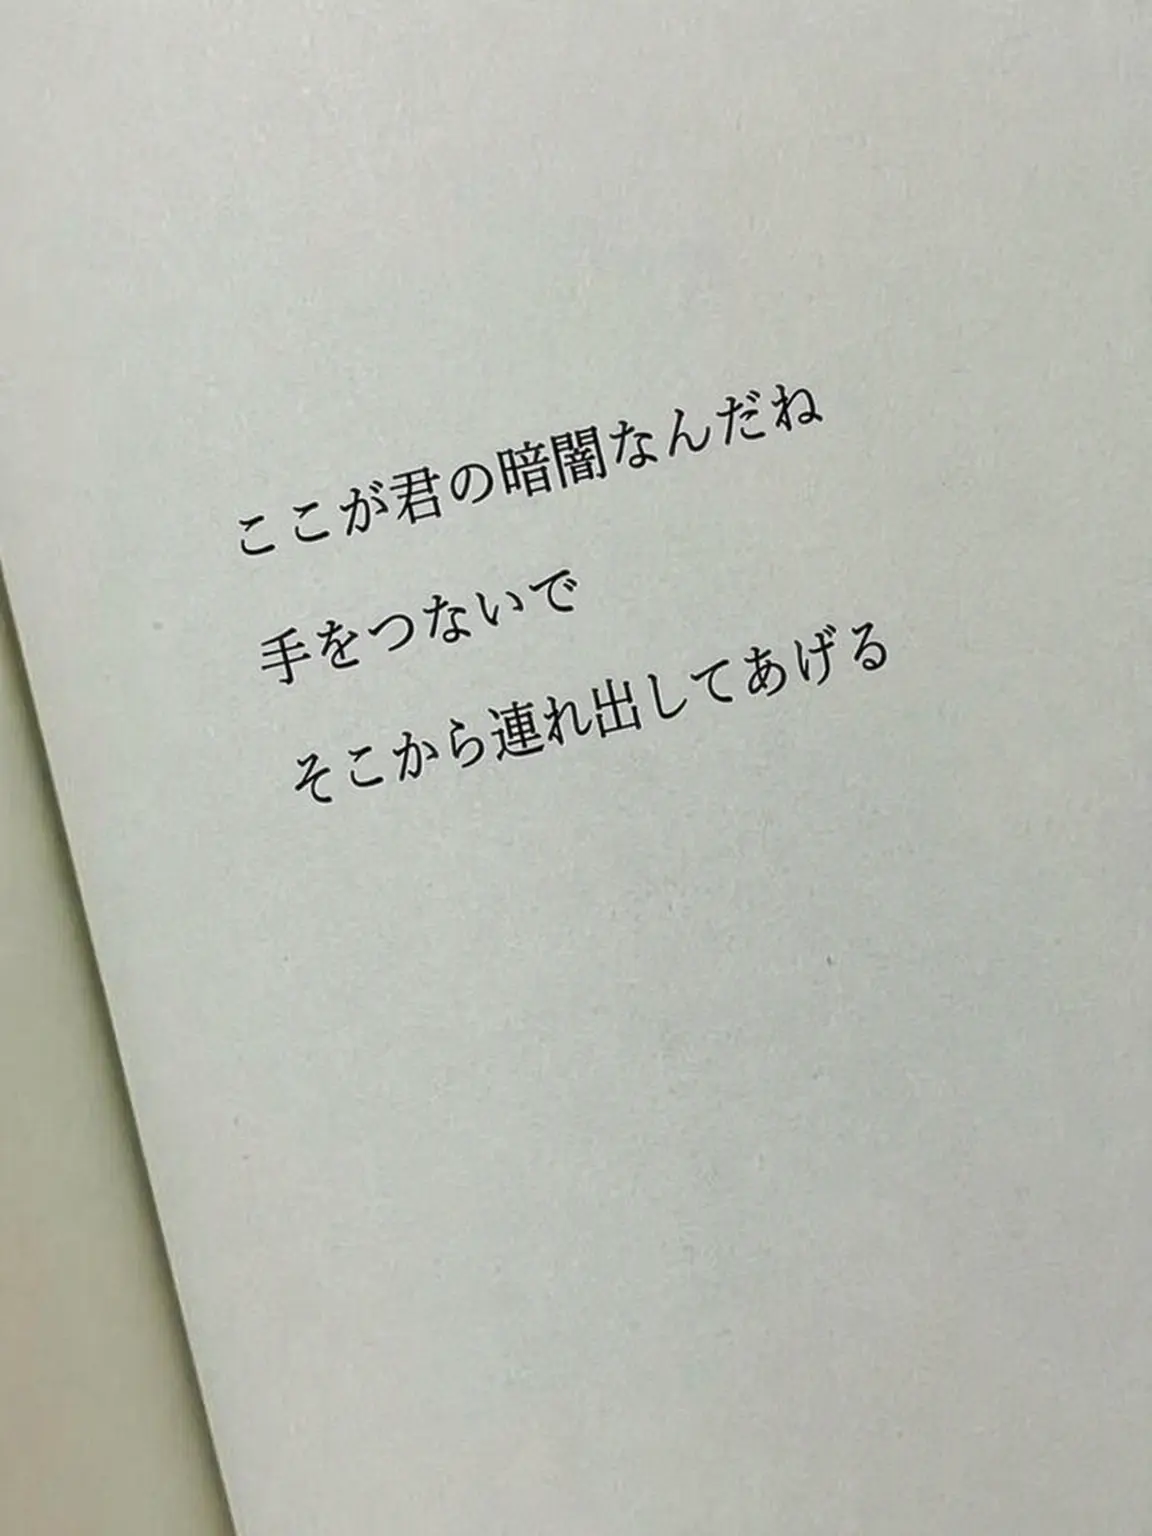 ここが君の暗闇なんだね
手をつないで
そこから連れ出してあげる